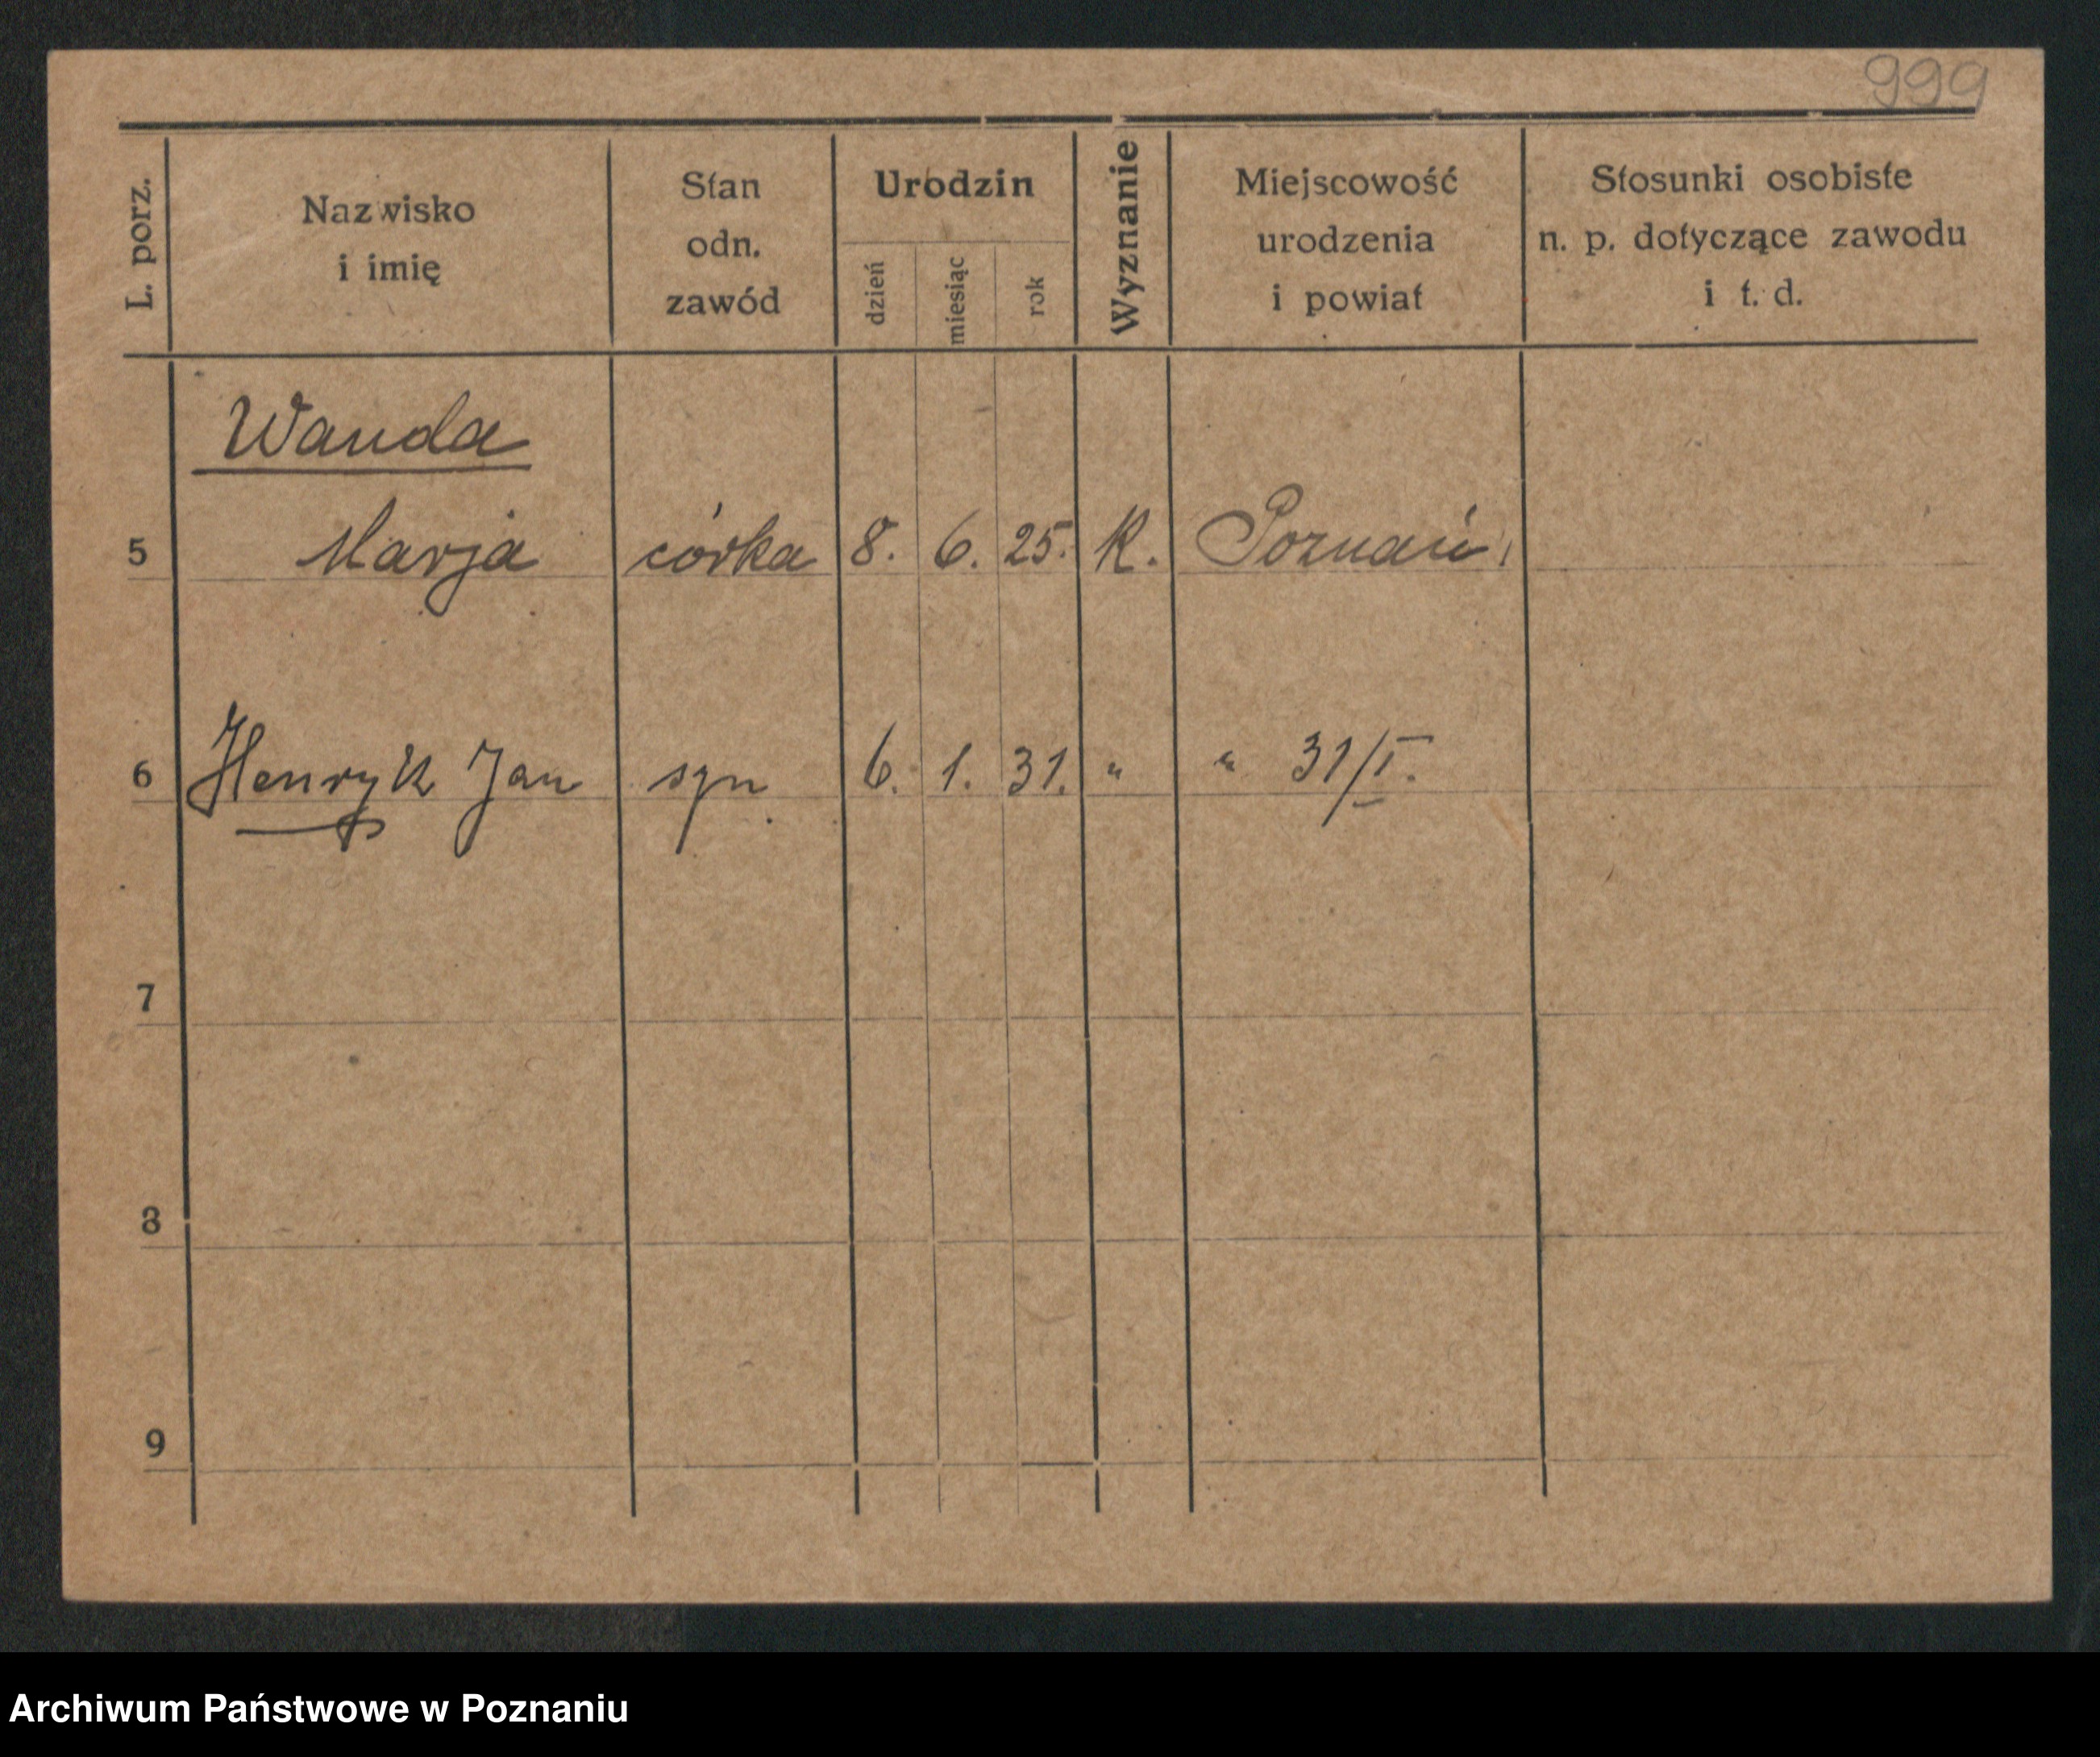 999
L. porz.
Nazwisko
i imię
Stan
odn.
zawód
Urodzin
dzień
miesiąc
rok
Wyznanie
Miejscowość
urodzenia
i powiat
Stosunki osobiste
n. p. dotyczące zawodu
i t. d.
Wanda
5 Marja córka 8. 6. 25. K. Poznań
6 Henryk Jan syn 6. 1. 31. " " 31/I.
7
8
9
Archiwum Państwowe w Poznaniu